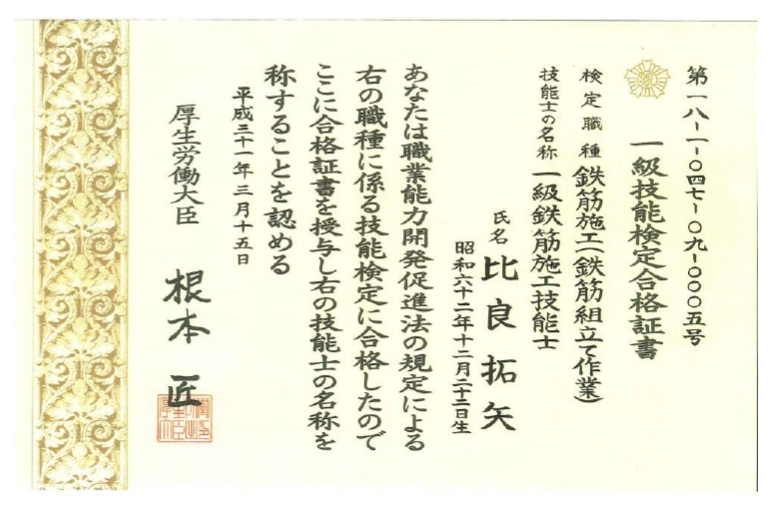 第一八-一-〇四七-〇九-〇〇〇五号
一級技能検定合格証書
検定職種 鉄筋施工(鉄筋組立て作業)
技能士の名称 一級鉄筋施工技能士
氏名 比良拓矢
昭和六十二年十二月二十二日生
あなたは職業能力開発促進法の規定による
右の職種に係る技能検定に合格したので
ここに合格証書を授与し右の技能士の名称を
称することを認める
平成三十一年三月十五日
厚生労働大臣 根本 匠